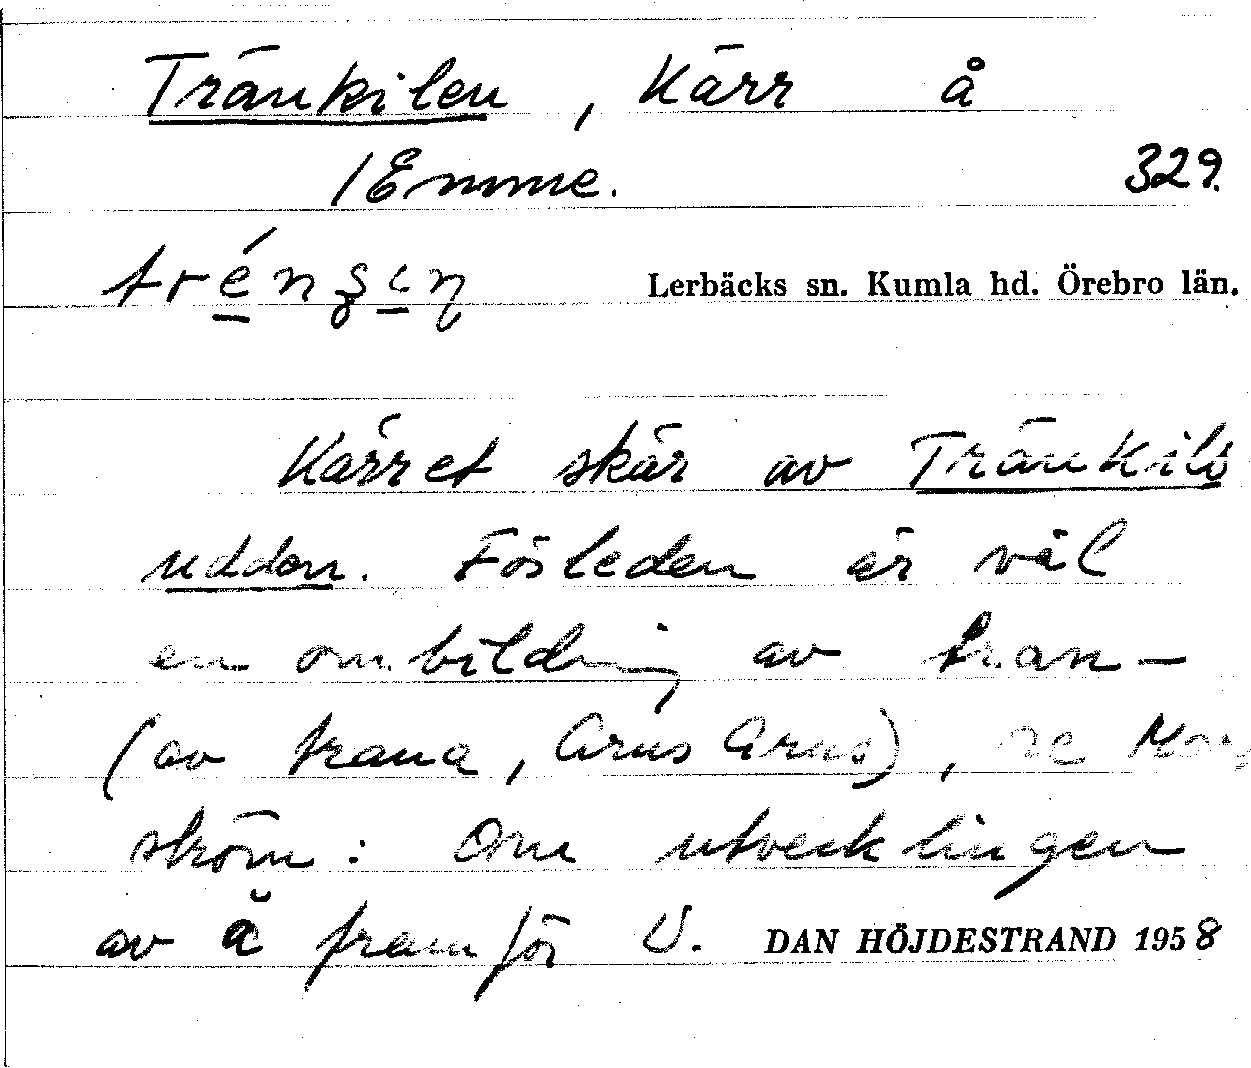 Tränkilen, Kärr å
1 Emme. 329.
Lerbäcks sn. Kumla hd. Örebro län.
Kärret skär av Tränkils
udden. Förleden är väl
en ombildning av tran-
(av trana, Grus Grus), se Mor
ström: Om utvecklingen
av ă framför V. DAN HÖJDESTRAND 1958